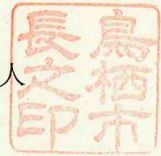 鳥栖市
長之印
人